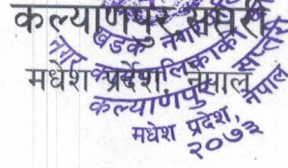 कल्याणपुर, सप्तरी
मधेश प्रदेश, नेपाल
खडक नगर
कल्याणपुर, सप्तरी
मधेश प्रदेश, नेपाल
२०७३